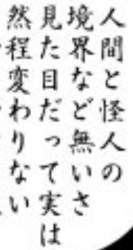 人間と怪人の
境界など無いさ
見た目だって実は
然程変わりない